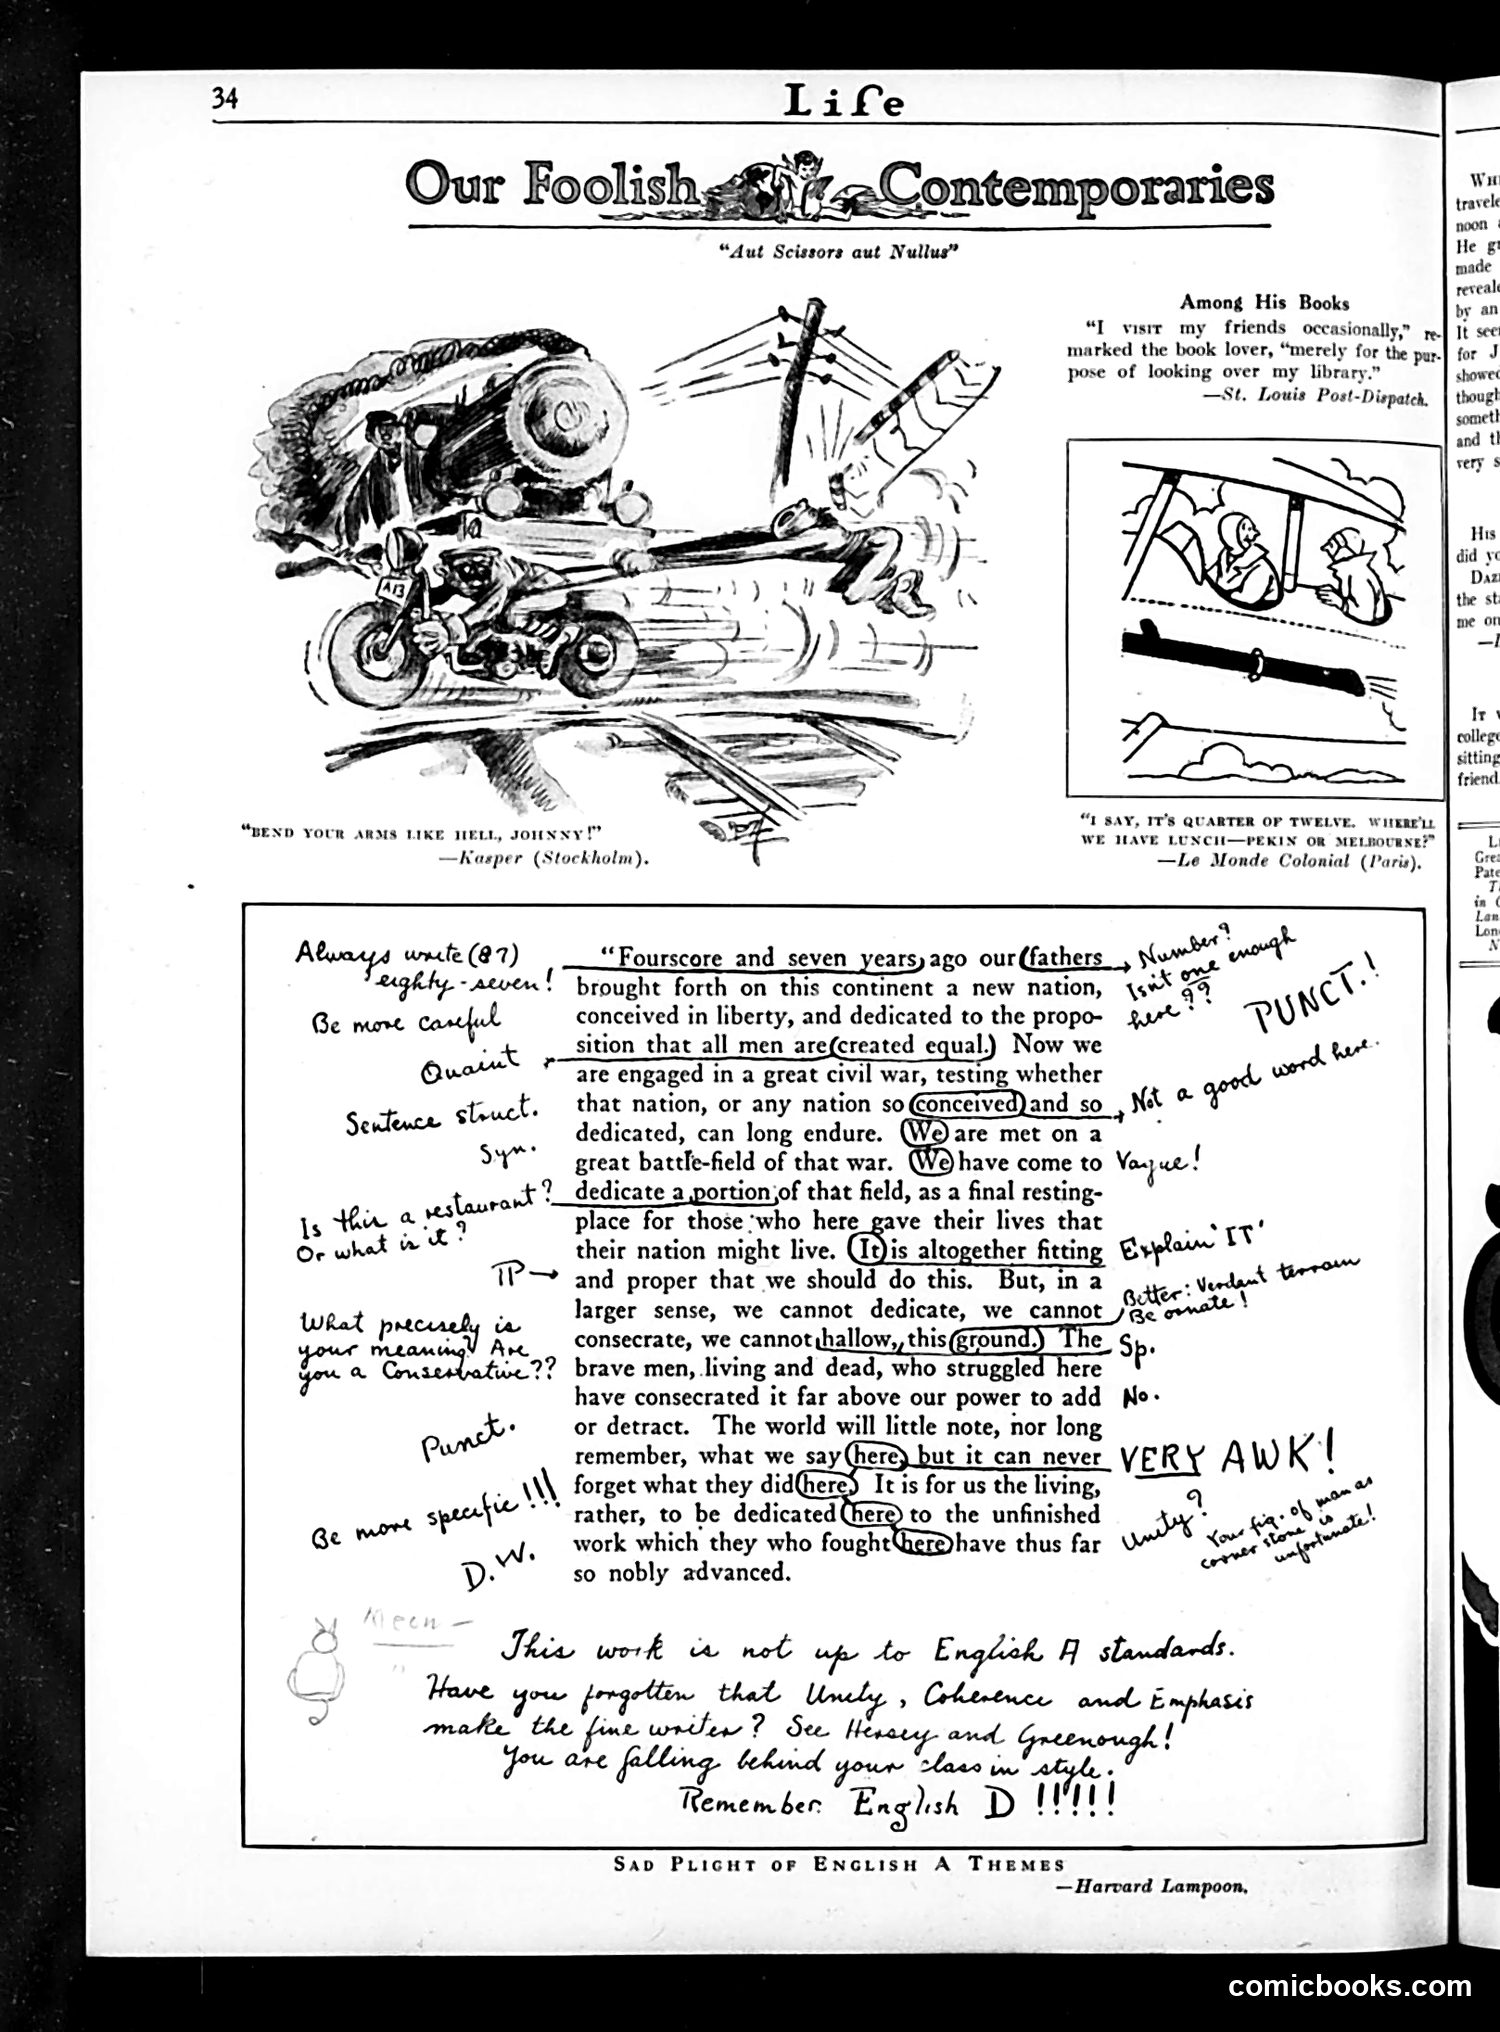 34
Life
Our Foolish Contemporaries
"Aut Scissors aut Nullus"
A13
"BEND YOUR ARMS LIKE HELL, JOHNNY!"
—Kasper (Stockholm).
Among His Books
"I VISIT my friends occasionally," re-
marked the book lover, "merely for the pur-
pose of looking over my library."
—St. Louis Post-Dispatch.
"I SAY, IT'S QUARTER OF TWELVE. WHERE'LL
WE HAVE LUNCH—PEKIN OR MELBOURNE?"
—Le Monde Colonial (Paris).
Always write (87)
eighty-seven!
Be more careful
Quaint
Sentence struct.
Syn.
Is this a restaurant?
Or what is it?
TP
What precisely is
your meaning? Are
you a Conservative??
Punct.
Be more specific!!!
D.W.
"Fourscore and seven years, ago our fathers
brought forth on this continent a new nation,
conceived in liberty, and dedicated to the propo-
sition that all men are created equal. Now we
are engaged in a great civil war, testing whether
that nation, or any nation so conceived and so
dedicated, can long endure. We are met on a
great battle-field of that war. We have come to
dedicate a portion of that field, as a final resting-
place for those who here gave their lives that
their nation might live. It is altogether fitting
and proper that we should do this. But, in a
larger sense, we cannot dedicate, we cannot
consecrate, we cannot hallow, this ground. The
brave men, living and dead, who struggled here
have consecrated it far above our power to add
or detract. The world will little note, nor long
remember, what we say here, but it can never
forget what they did here. It is for us the living,
rather, to be dedicated here to the unfinished
work which they who fought here have thus far
so nobly advanced.
Number?
Isn't one enough
here??
PUNCT.!
Not a good word here.
Vague!
Explain 'IT'
Better: Verdant terrain
Be ornate!
Sp.
No.
VERY AWK!
Unity?
Your fig. of man as
corner stone is
unfortunate!
This work is not up to English A standards.
Have you forgotten that Unity, Coherence and Emphasis
make the fine writer? See Hersey and Greenough!
You are falling behind your class in style.
Remember English D !!!!!
SAD PLIGHT OF ENGLISH A THEMES
—Harvard Lampoon.
travele
noon
He
made
by an
for J
showed
though
and
very
His
did
the
me on
college
sitting
friend
in
comicbooks.com